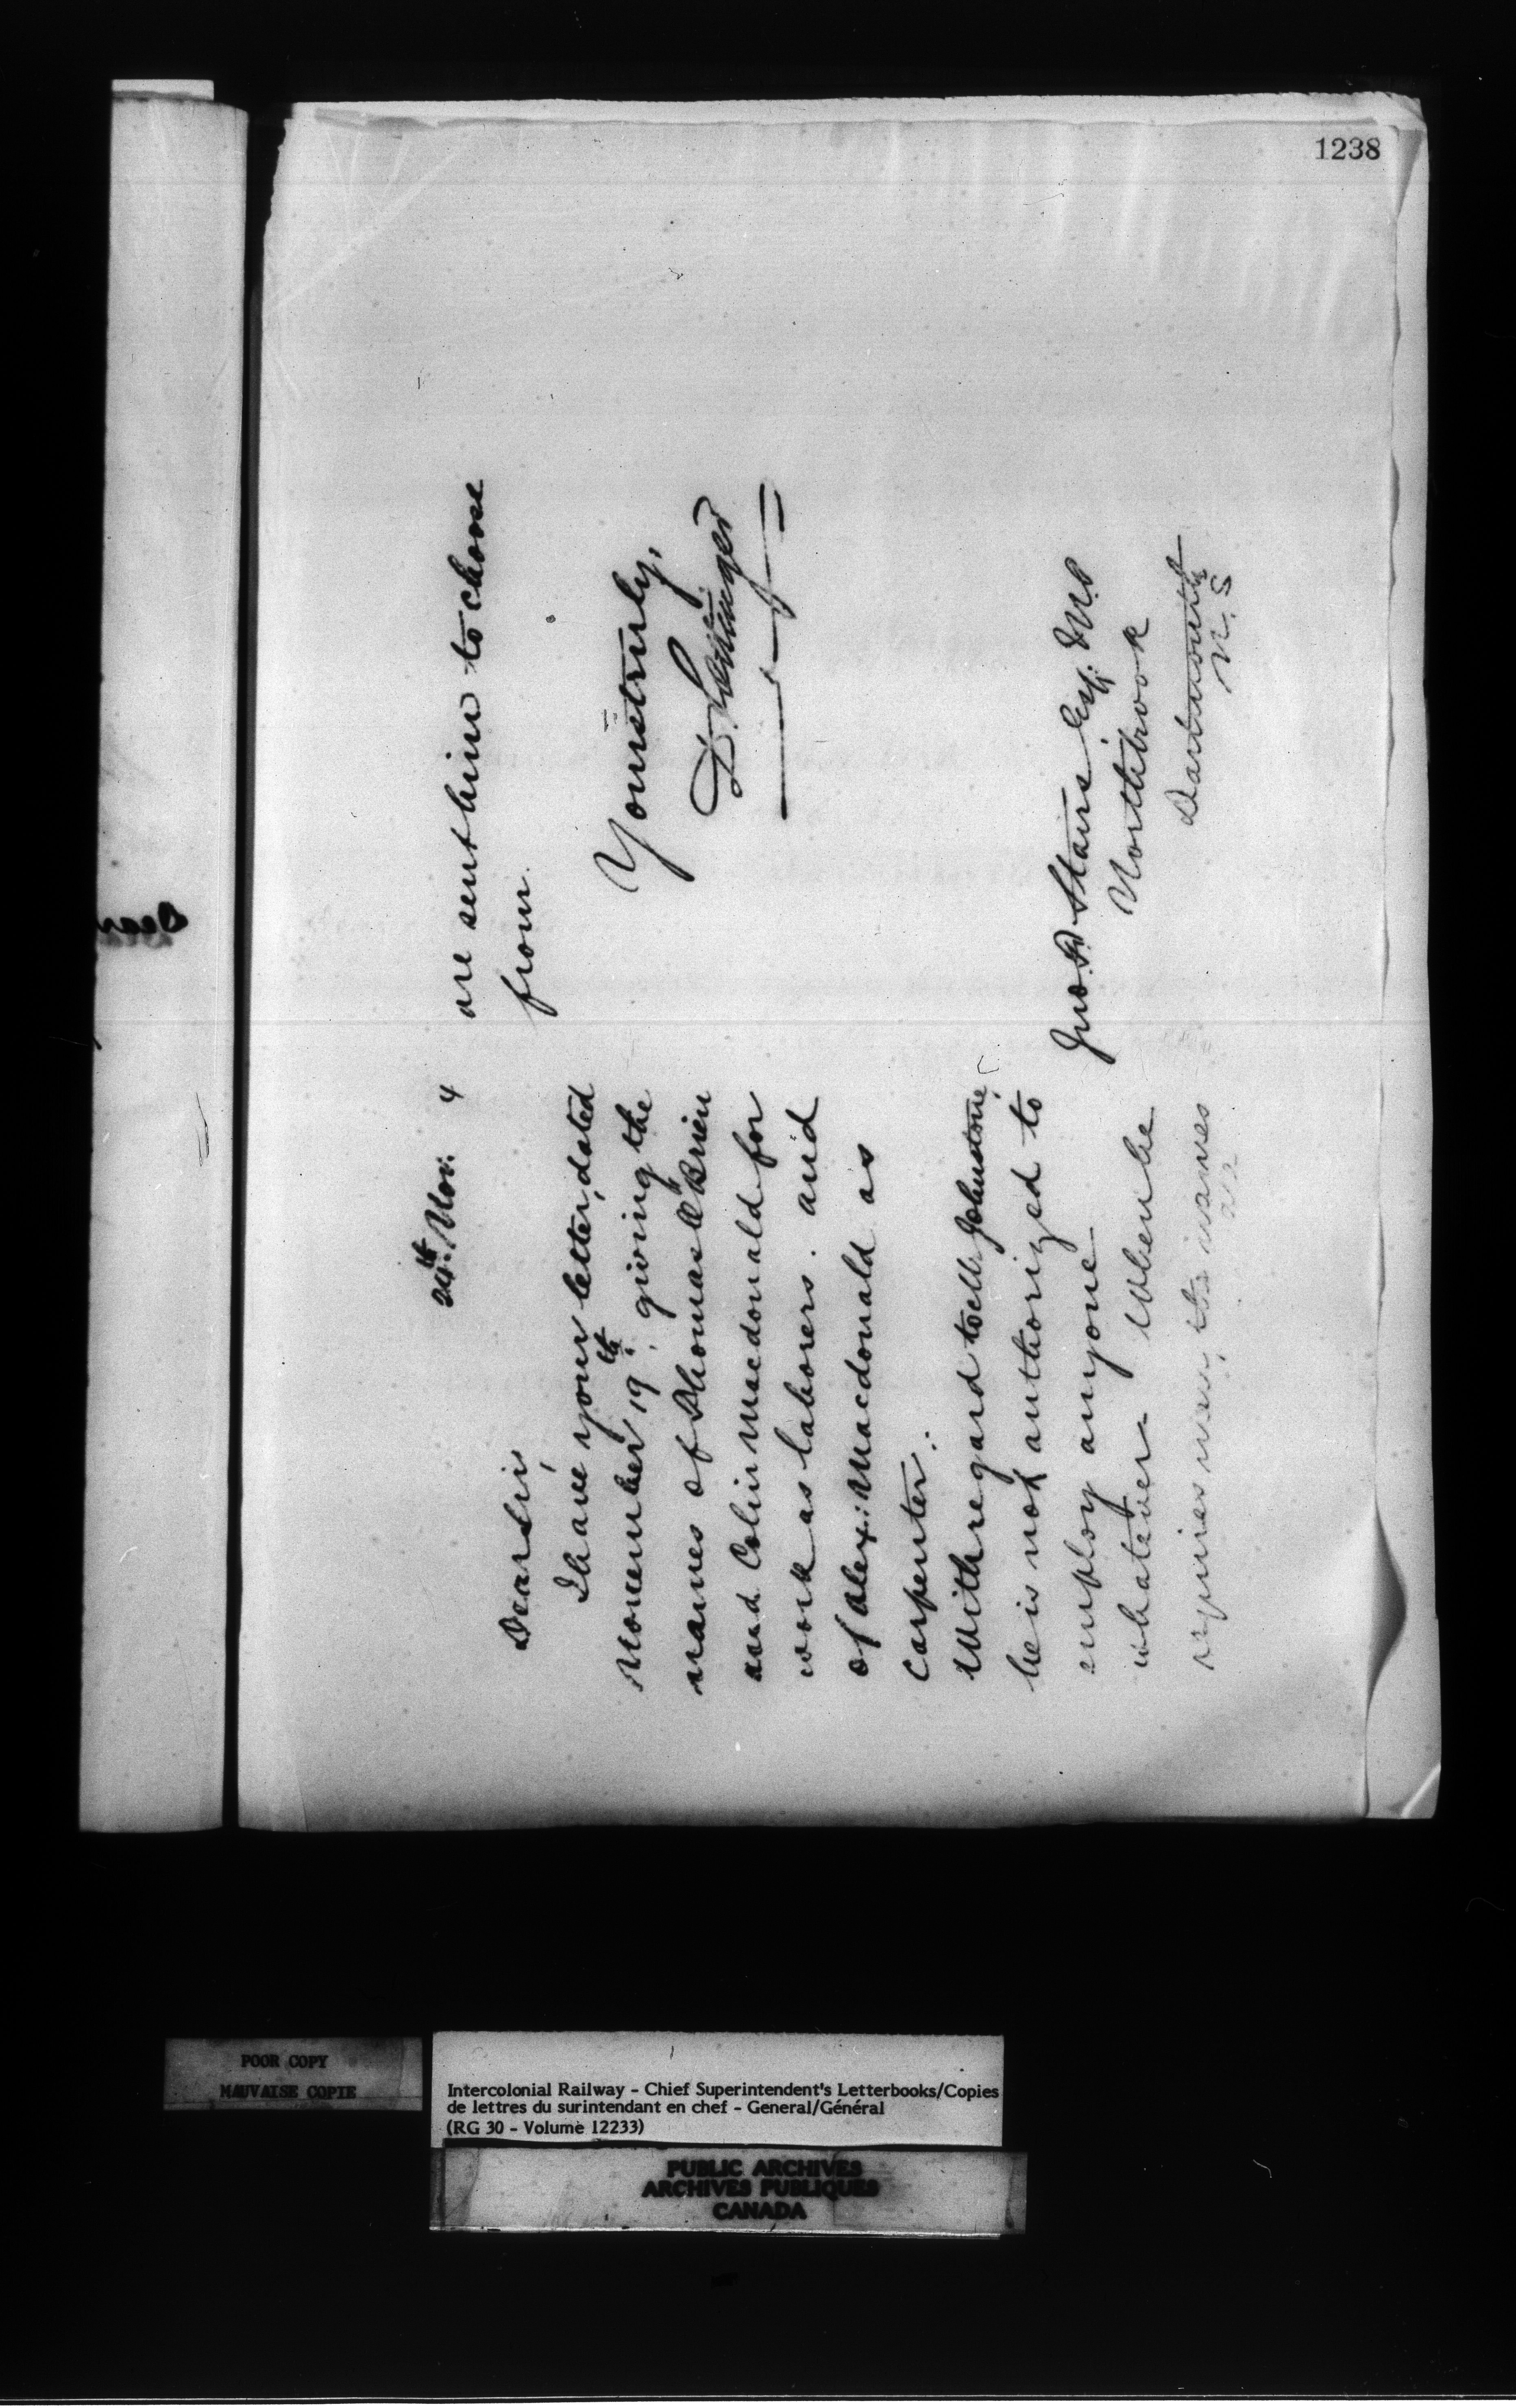 1238
24th. Nov. 4
Dear Sir,
I have your letter, dated
November 19th, giving the
names of Thomas O'Brien
and Colin Macdonald for
work as laborers. and
of Alex: Macdonald as
carpenter.
With regard to Mr Johnstone,
he is not authorized to
employ anyone
whatever. When he
requires men, the names
are
are sent him to choose
from.
Yours truly,
D. Pottinger
Jno. F. Stairs Esq: M.P.
Northbrook
Dartmouth
N.S
Dear
POOR COPY
MAUVAISE COPIE
Intercolonial Railway - Chief Superintendent's Letterbooks/Copies
de lettres du surintendant en chef - General/Général
(RG 30 - Volume 12233)
PUBLIC ARCHIVES
ARCHIVES PUBLIQUES
CANADA